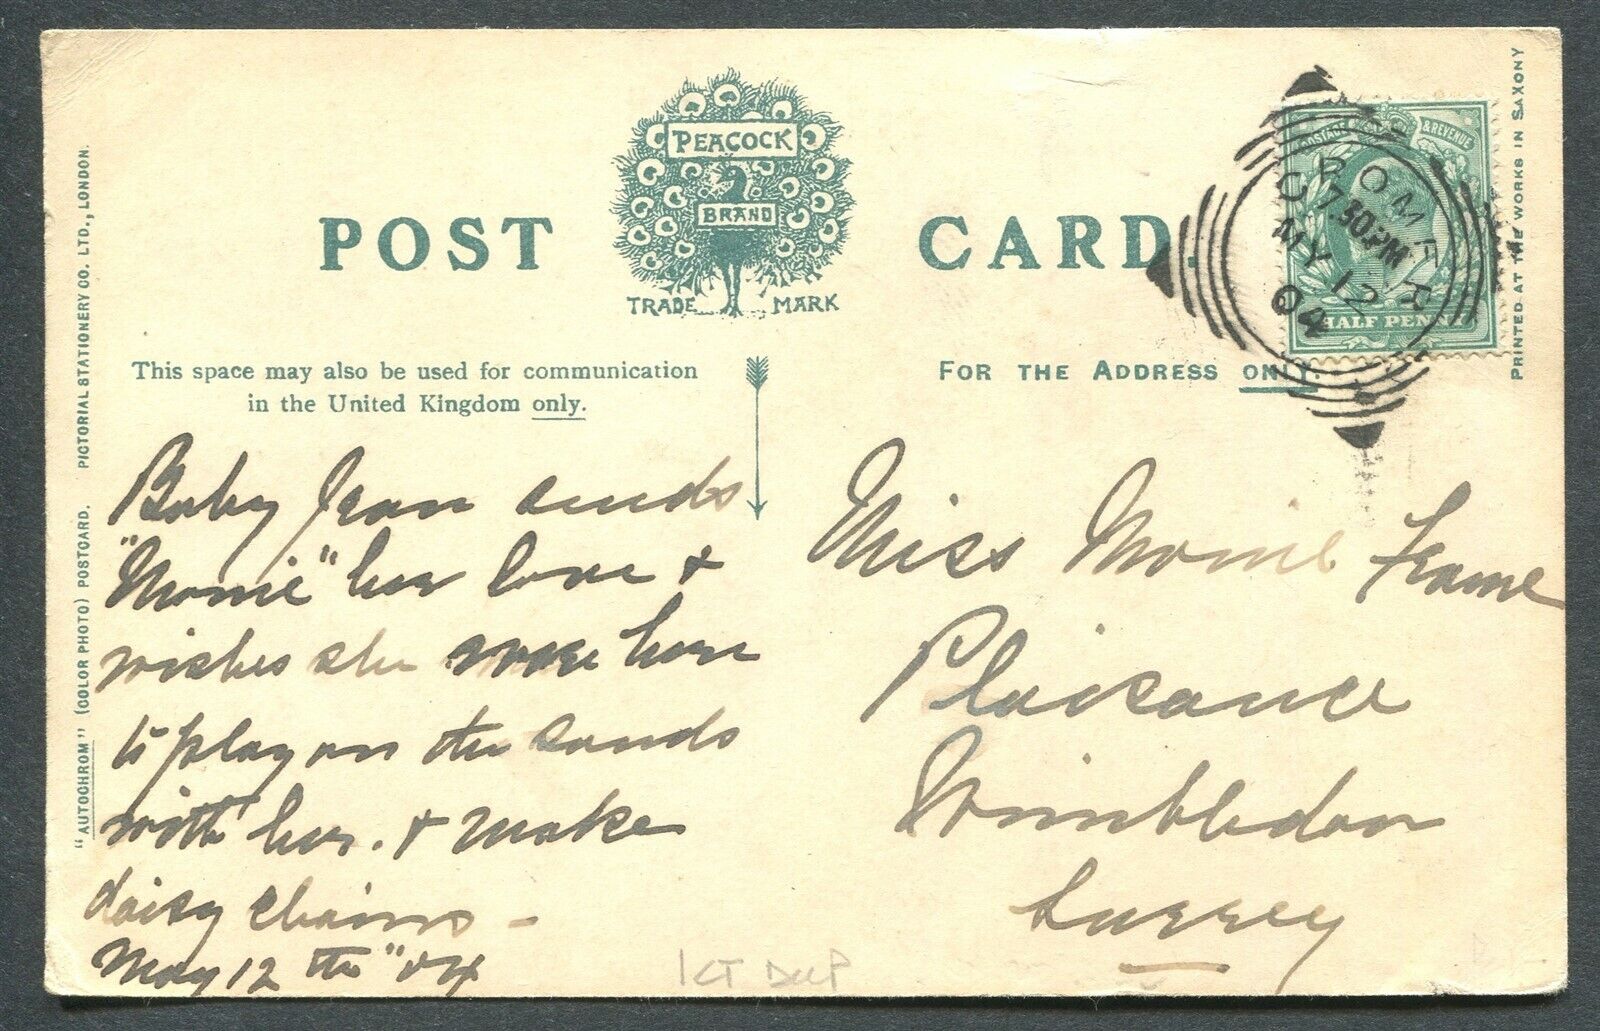 POST CARD.
PEACOCK
BRAND
TRADE MARK
This space may also be used for communication
in the United Kingdom only.
FOR THE ADDRESS ONLY.
"AUTOCHROM" (COLOR PHOTO) POSTCARD. PICTORIAL STATIONERY CO. LTD., LONDON.
PRINTED AT THE WORKS IN SAXONY
POSTAGE & REVENUE
HALF PENNY
CROMER
7.30PM
MY 12
04
Baby Jean sends
"Monie" her love &
wishes she were here
to play on the sands
with her. & make
daisy chains -
May 12 th "04
Miss Monie Frame
Plaisance
Wimbledon
Surrey